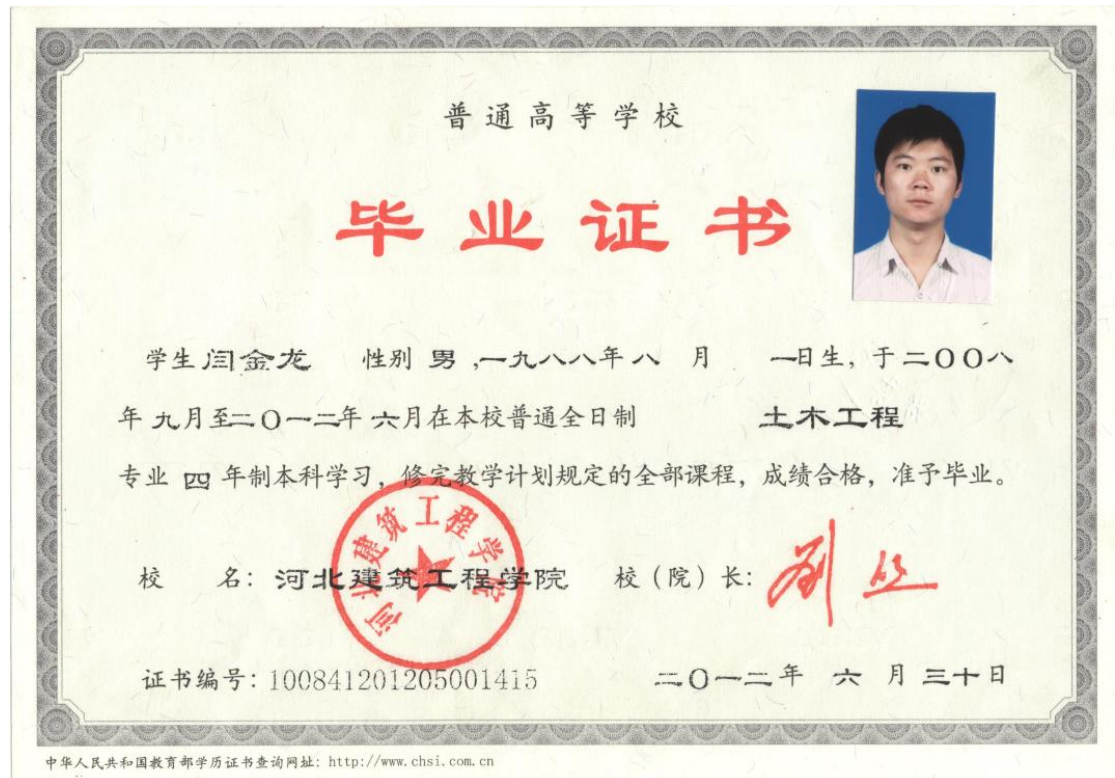 普通高等学校
毕业证书
学生 闫金龙 性别 男 ,一九八八年 八 月 一日生，于 二〇〇八
年 九月至二〇一二年 六月在本校普通全日制 土木工程
专业 四 年制本科学习，修完教学计划规定的全部课程，成绩合格，准予毕业。
河北建筑工程学院
校 名：河北建筑工程学院 校（院）长：
证书编号：100841201205001415 二〇一二年 六 月 三十日
中华人民共和国教育部学历证书查询网址：http://www.chsi.com.cn